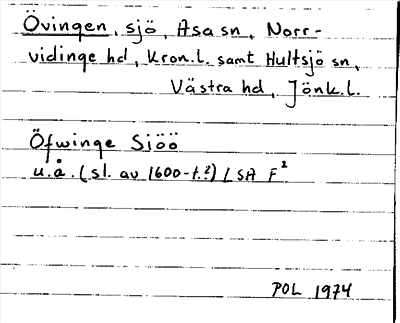 Övingen, sjö, Asa sn, Norr-
vidinge hd, Kron.l. samt Hultsjö sn,
Västra hd, Jönk.l.
Öfwinge Sjöö
u.å. (sl. av 1600-t.?) LSA F²
POL 1974